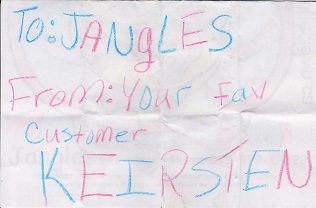 To: JANgLES
From: Your Fav
Customer
KEIRSTEN